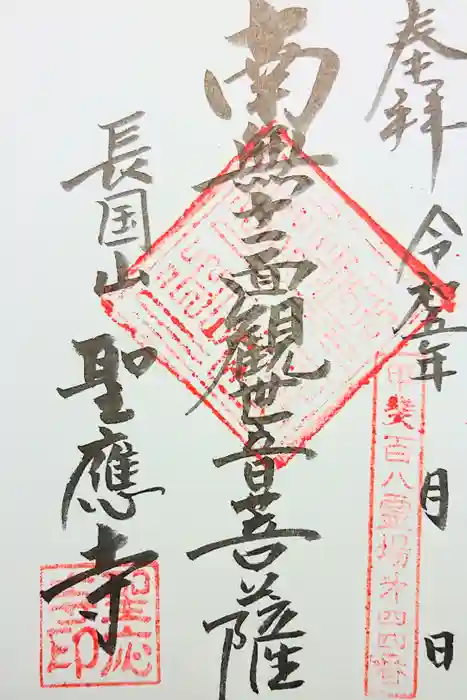 奉拝
令和五年 月 日
甲斐百八霊場第四四番
南無十一面観世音菩薩
長国山
聖應寺
聖応
寺印